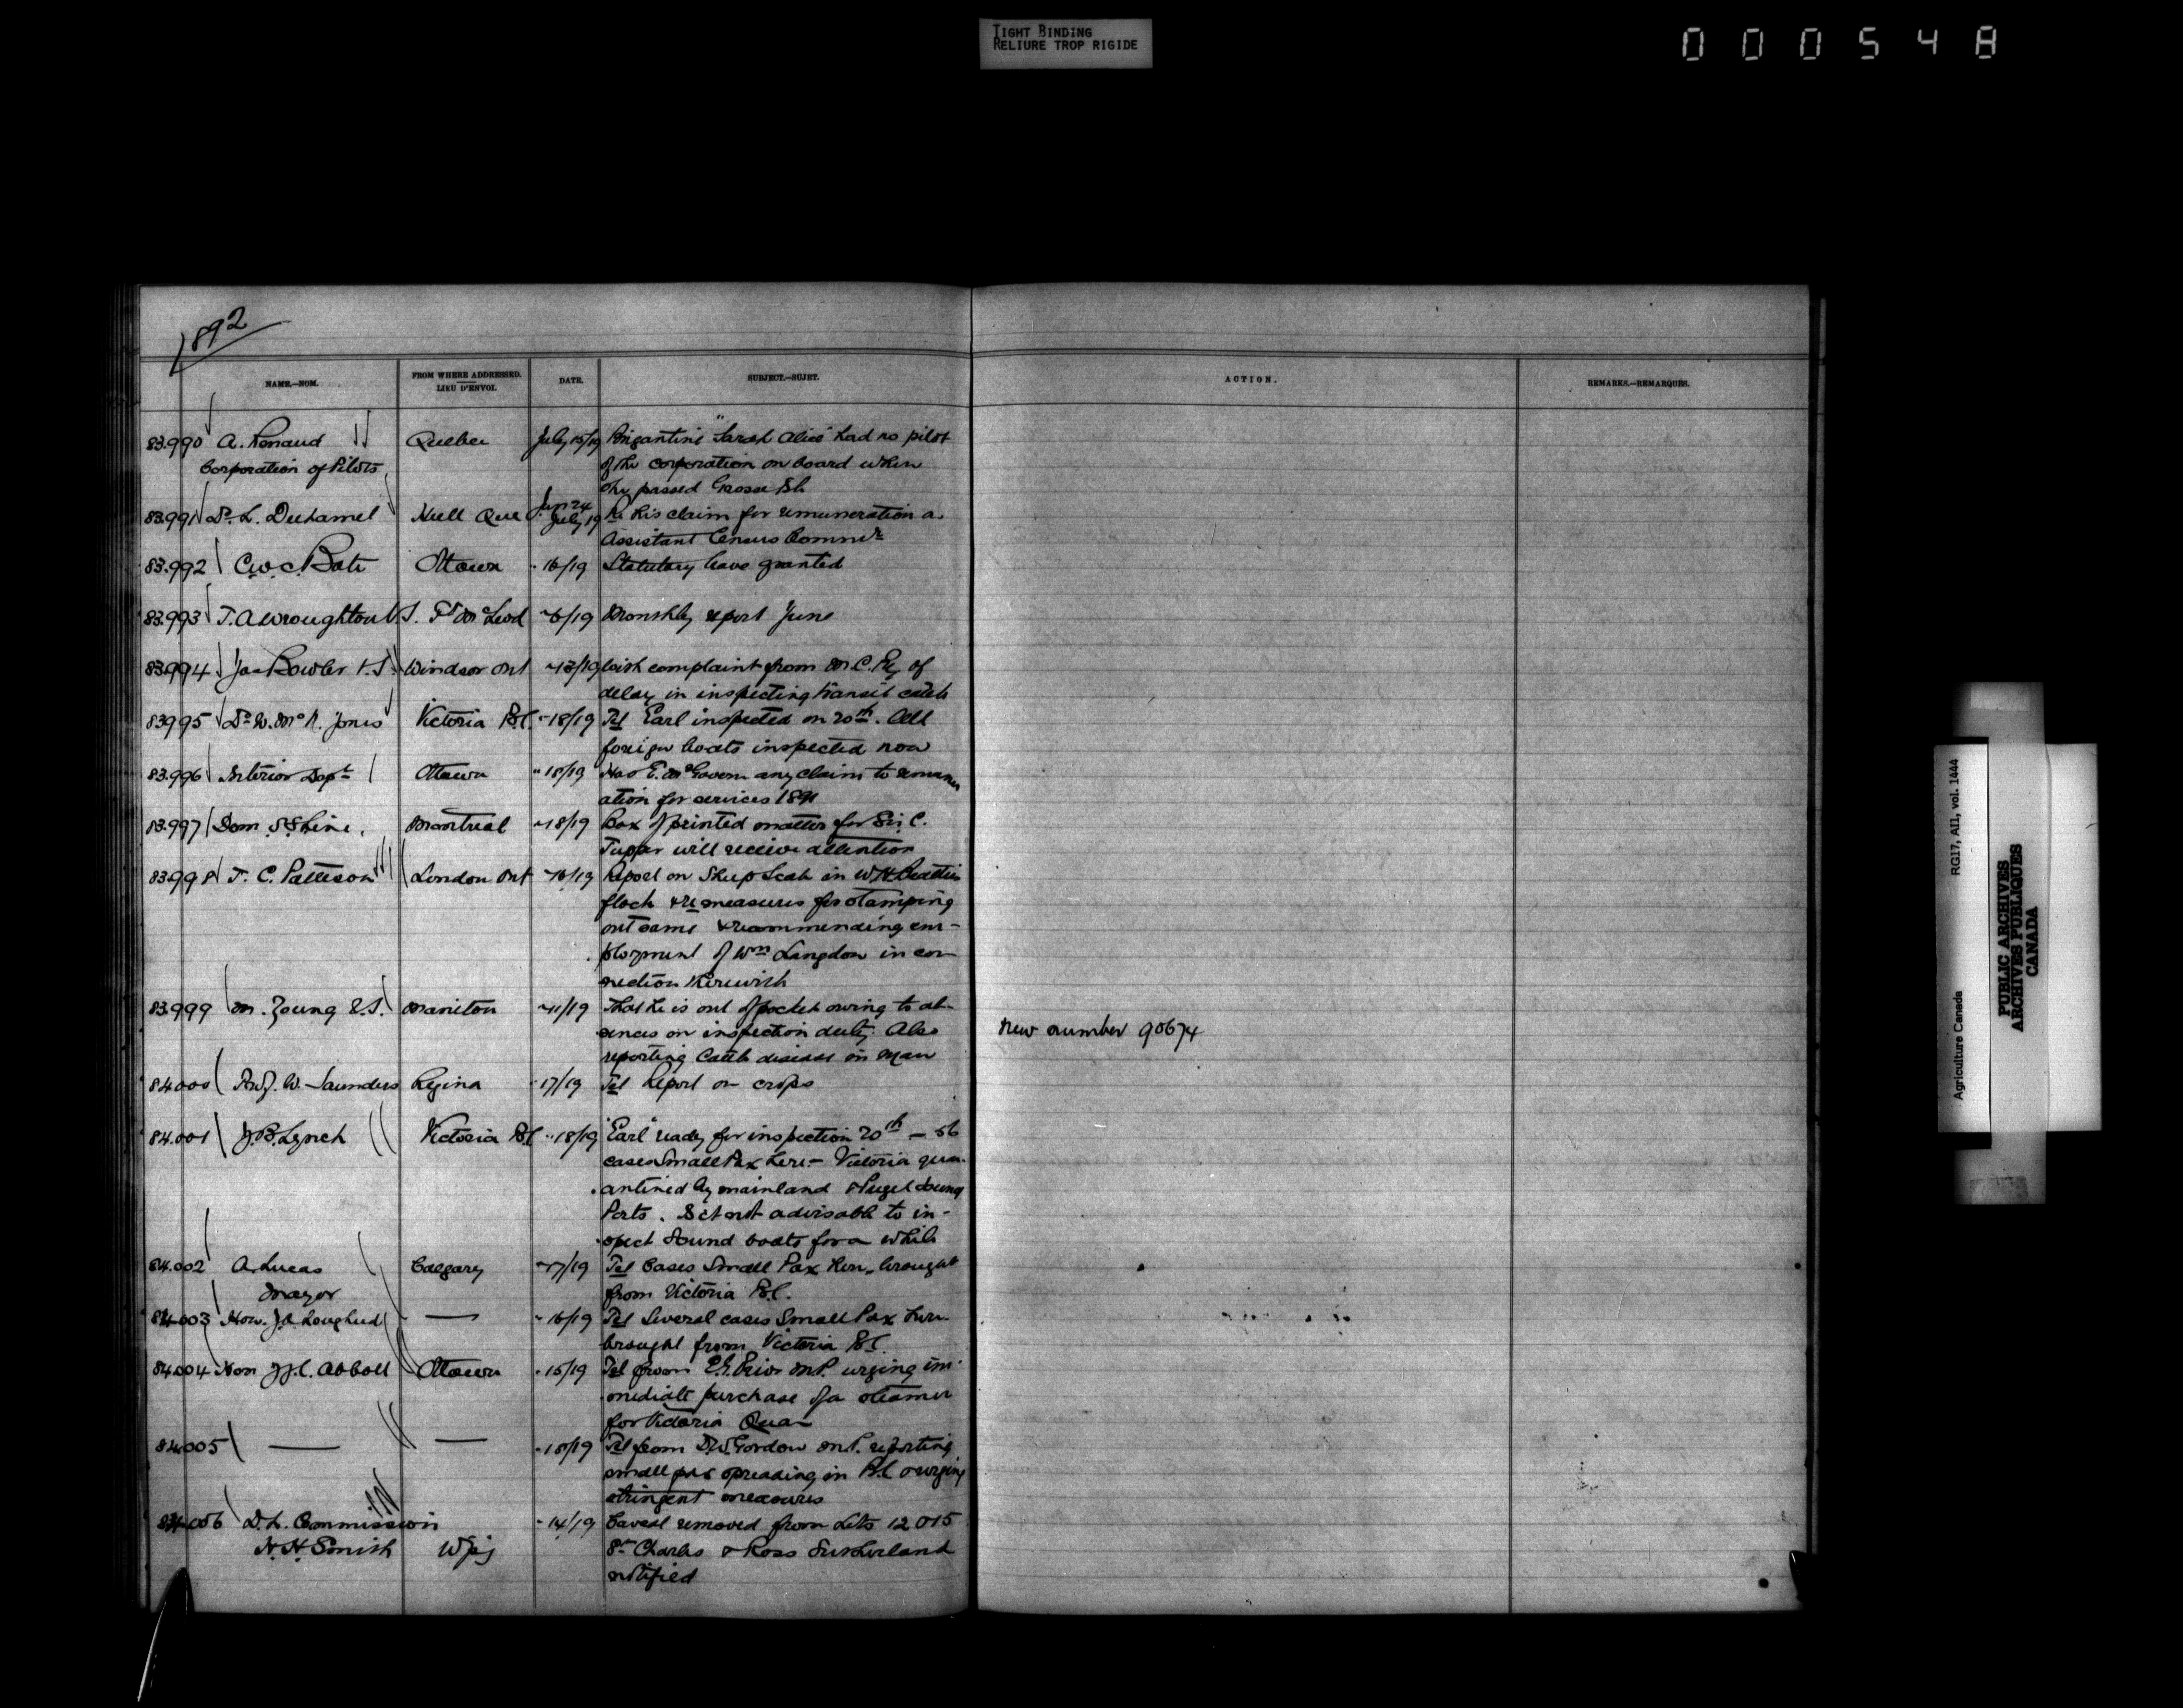 TIGHT BINDING
RELIURE TROP RIGIDE
000548
1892
NAME.—NOM.
FROM WHERE ADDRESSED.
LIEU D'ENVOI.
DATE.
SUBJECT.—SUJET.
ACTION.
REMARKS.—REMARQUES.
83.990 A. Renaud Quebec July 15/19 Brigantine "Sarah Alice" had no pilot
Corporation of Pilots of the corporation on board when
she passed Grosse Isle
83.991 Dr. L. Duhamel Hull Que Jun 24 July 19 Re his claim for remuneration as
Assistant Census Commr
83.992 C.W.C. Bate Ottawa " 16/19 Statutary leave granted
83.993 T.A Wroughton V.S. Ft McLeod " 6/19 Monthly report June
83.994 Jas Bowler V.S. Windsor Ont " 13/19 With complaint from M.C. Ry of
delay in inspecting transit cattle
83.995 Dr. W. McN. Jones Victoria B.C. " 18/19 Tel Earl inspected on 20th. All
foreign boats inspected now
83.996 Interior Dept Ottawa " 18/19 Has E. McGovern any claim to remuner
ation for services 1891
83.997 Dom. S.S Line. Montreal " 18/19 Box of printed matter for Sir C.
Tupper will receive attention
83.998 T. C. Patteson London Ont " 16/19 Report on Sheep Scab in W H Beatties
flock & re measures for stamping
out same & recommending em-
ployment of Wm Langdon in con-
nection therewith
83.999 M. Young V.S. Manitou " 11/19 That he is out of pocket owing to ab-
sences on inspection duty. Also
reporting Cattle disease in Man
new number 90674
84.000 Prof. W. Saunders Regina " 17/19 Tel Report on crops
84.001 J.B. Lynch Victoria B.C " 18/19 "Earl" ready for inspection 20th — 56
cases Small Pox here - Victoria quar-
antined by mainland & Puget Sound
Ports. Is it not advisable to in-
spect Sound boats for a while
84.002 A. Lucas Calgary " 17/19 Tel Cases Small Pox here, brought
Mayor from Victoria B.C.
84.003 Hon. J.A. Lougheed — " 16/19 Tel Several cases Small Pox here
brought from Victoria B.C.
84.004 Hon J.J.C. Abbott Ottawa " 15/19 Tel from E.G. Prior M.P. urging im-
mediate purchase of a steamer
for Victoria Quar
84.005 — — " 18/19 Tel from D.W. Gordon M.P. reporting
small pox spreading in B.C & urging
stringent measures
84.006 D.L. Commission " 14/19 Caveat removed from Lots 12 & 15
H.H. Smith Wpg St Charles & Ross Sutherland
notified
RG17, AI1, vol. 1444
Agriculture Canada
PUBLIC ARCHIVES
ARCHIVES PUBLIQUES
CANADA